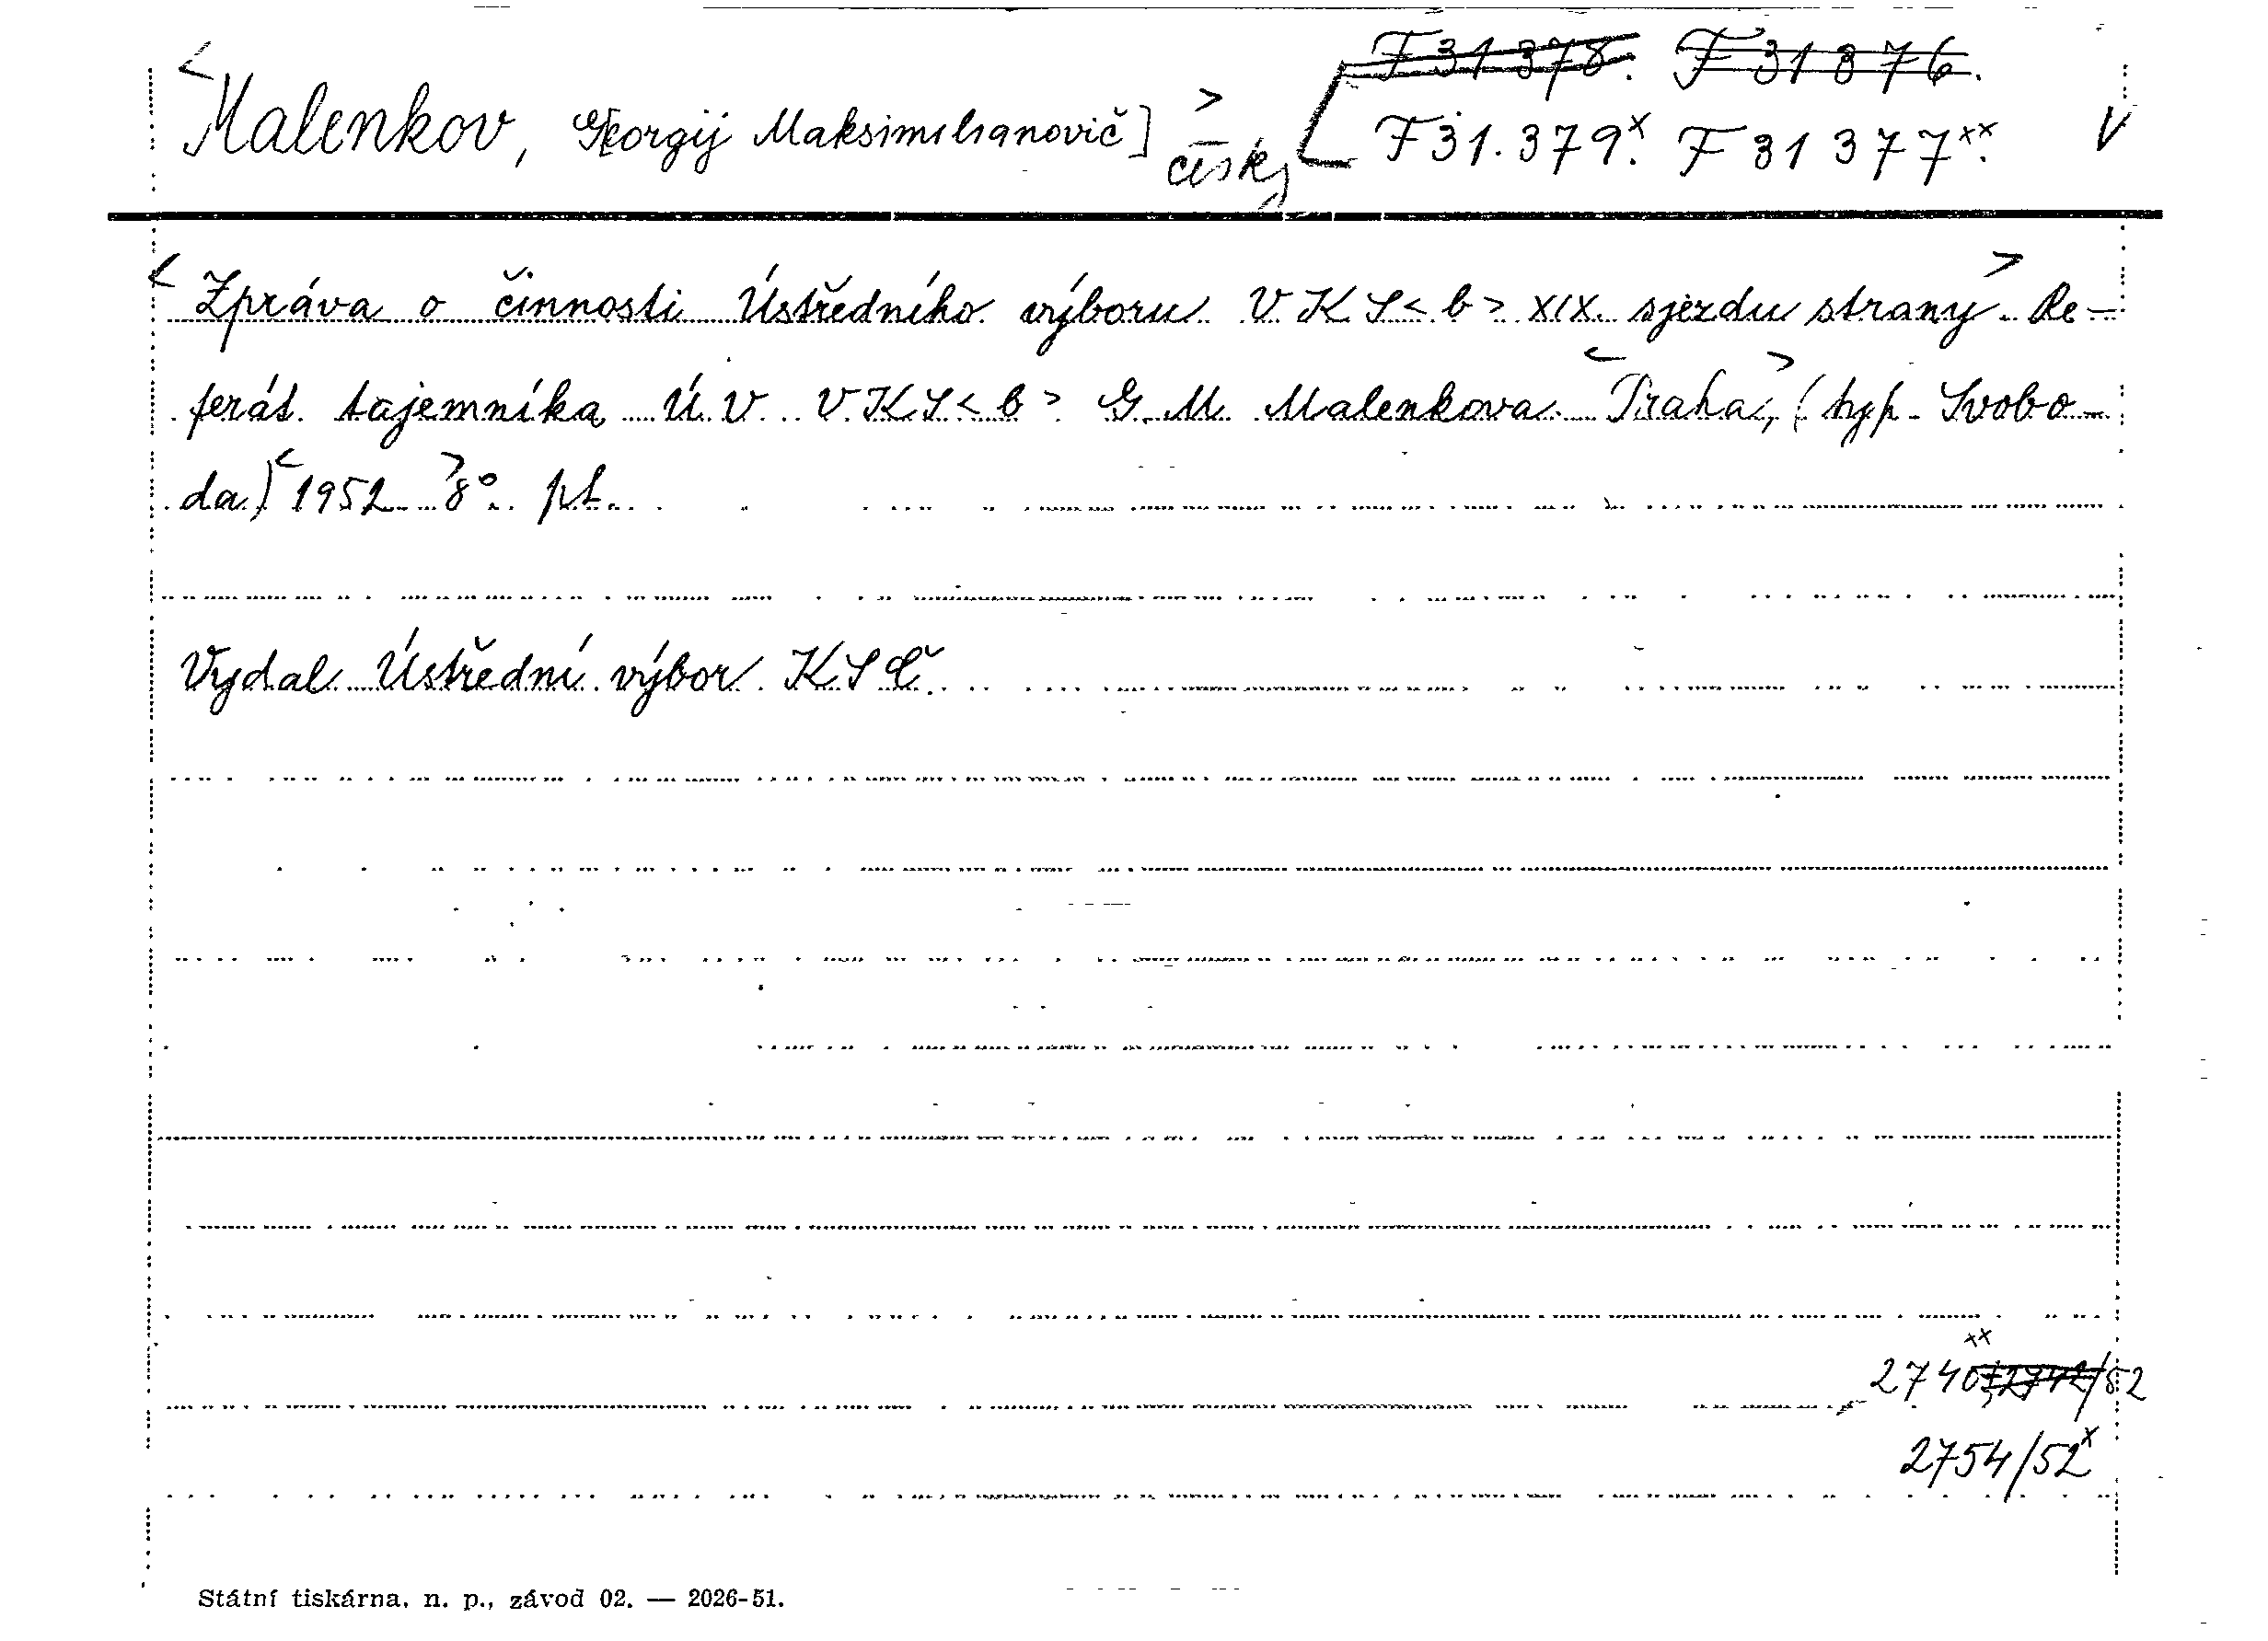 F 31 378. F 31 376.
<Malenkov, G[eorgij Maksimilianovič]> česky [F 31.379.x F 31 377xx. V
<Zpráva o činnosti Ústředního výboru VKS<b> XIX. sjezdu strany>. Re-
ferát tajemníka ÚV VKS<b> G. M. Malenkova. <Praha>, (typ. Svobo-
da) <1952> 8°. pt.
Vydal Ústřední výbor KSČ.
xx
2740, 2742/52
2754/52x
Státní tiskárna, n. p., závod 02. — 2026-51.